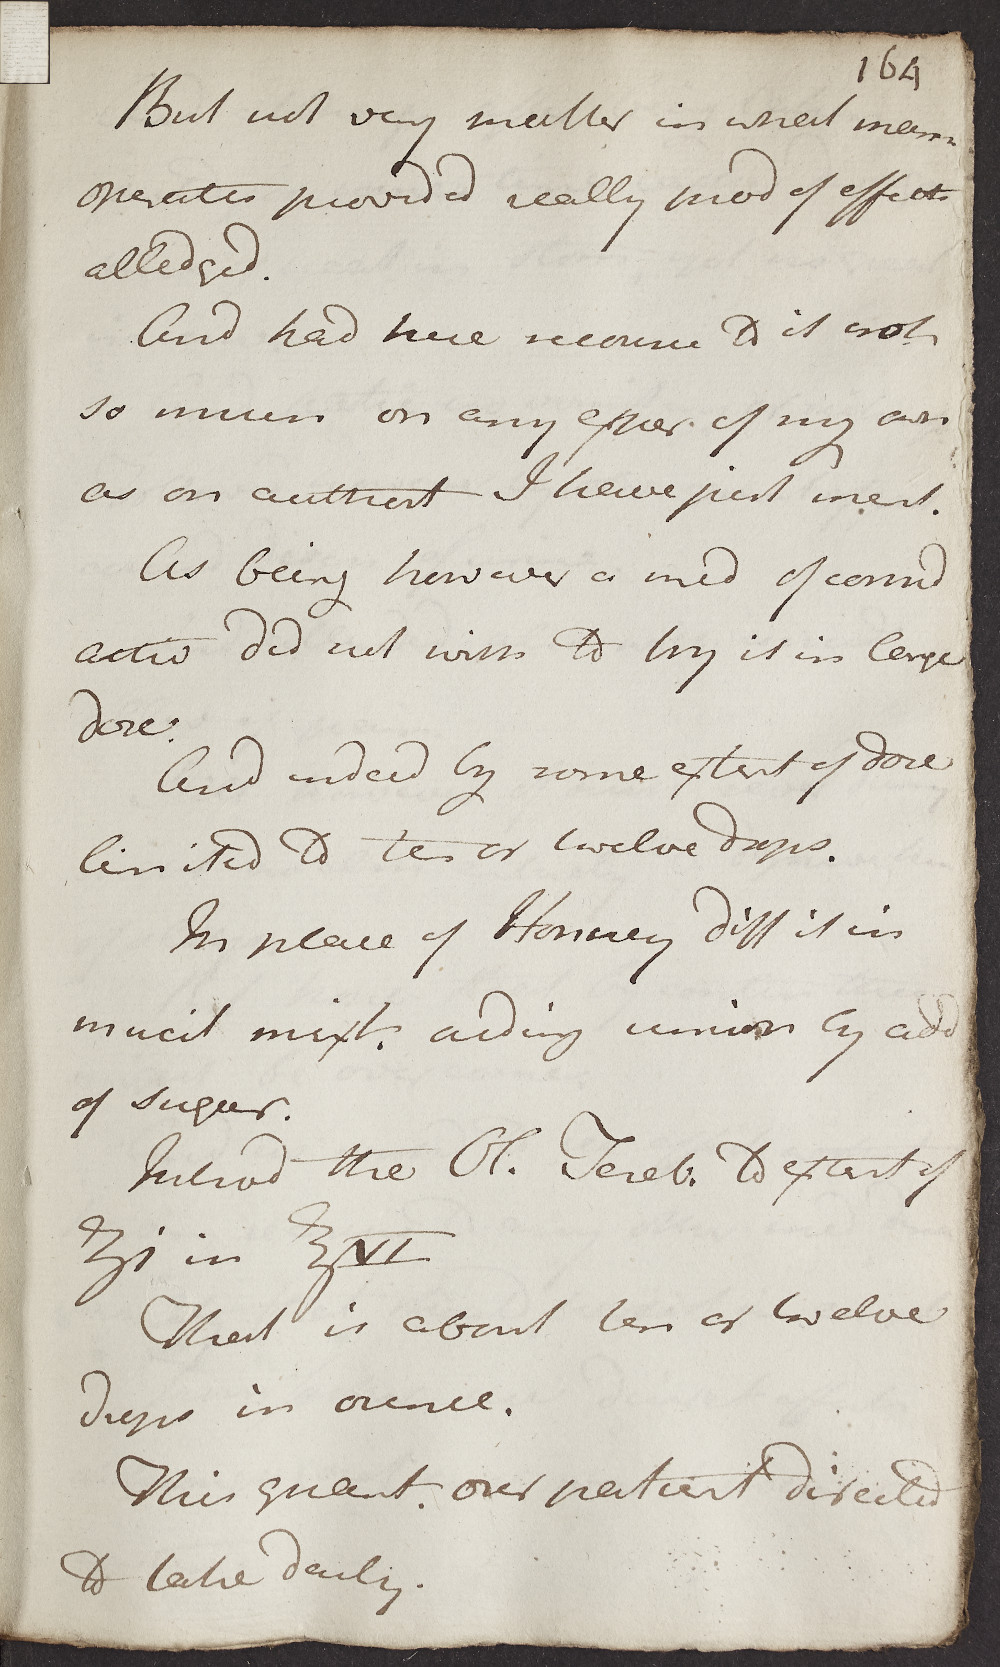 164
But not very matter in what mann
operates provided really prod of effects
alledged.
And had here recourse to it not
so much on any exper. of my own
as on authorit I have just ment.
As being however a med of consid
activ did not wish to try it in large
dose.
And indeed by some extent of dose
limited to ten or twelve drops.
In place of Honney diff it in
mucil mixt. aiding union by add
of sugar.
Introd the Ol. Tereb. to extent of
ʒi in ℥VI
That is about ten or twelve
drops in ounce.
This quant. our patient directed
to take daily.